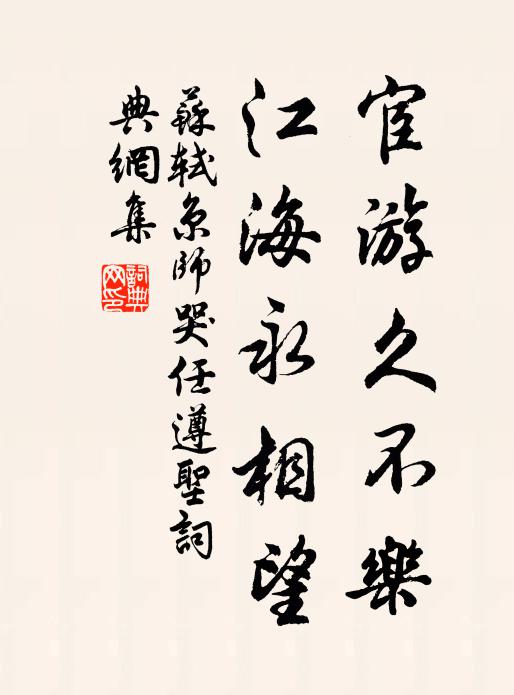 宦游久不樂
江海永相望
蘇軾京師哭任遵聖詞
典網集
詞典
网印